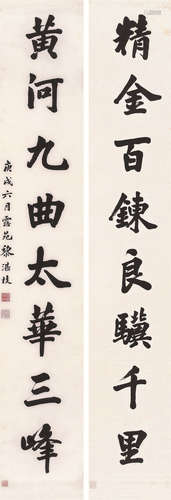 精金百鍊良驥千里
黃何九曲太華三峰
庚戌六月露苑黎湛枝